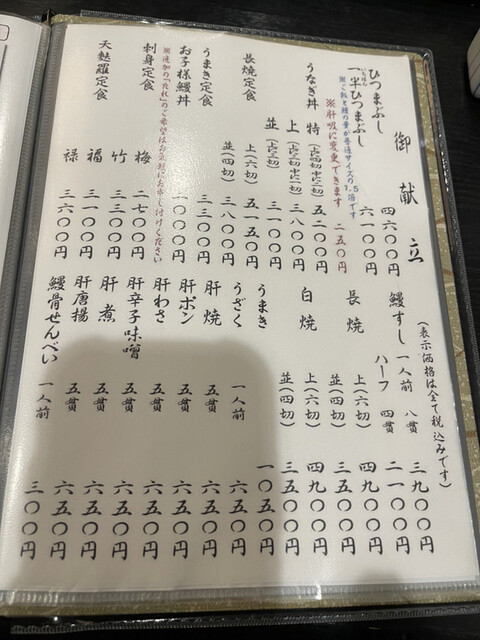 御献立
(表示価格は全て税込みです)
ひつまぶし 四六〇〇円
一半ひつまぶし 六一〇〇円
※ご飯と鰻の量が普通サイズの1.5倍です
※肝吸に変更できます 二五〇円
うなぎ丼 特(上に四切中に二切) 五二〇〇円
上(上に三切中に一切) 三八〇〇円
並(上に三切) 三一〇〇円
長焼定食 上(六切) 五一五〇円
並(四切) 三八〇〇円
うまき定食 三三〇〇円
お子様鰻丼
※追加の「たれ」のご希望はお気軽にお申し付けください
刺身定食 梅 二七〇〇円
竹 三三〇〇円
天麩羅定食 福 三一〇〇円
禄 三六〇〇円
鰻すし 一人前 八貫 三九〇〇円
ハーフ 四貫 二一〇〇円
長焼 上(六切) 四九〇〇円
並(四切) 三五〇〇円
白焼 上(六切) 四九〇〇円
並(四切) 三五〇〇円
うまき 一〇五〇円
うざく 一人前 六五〇円
肝焼 五貫 六五〇円
肝ポン 五貫 六五〇円
肝わさ 五貫 六五〇円
肝辛子味噌 五貫 六五〇円
肝煮 五貫 六五〇円
肝唐揚 五貫 六五〇円
鰻骨せんべい 一人前 三〇〇円